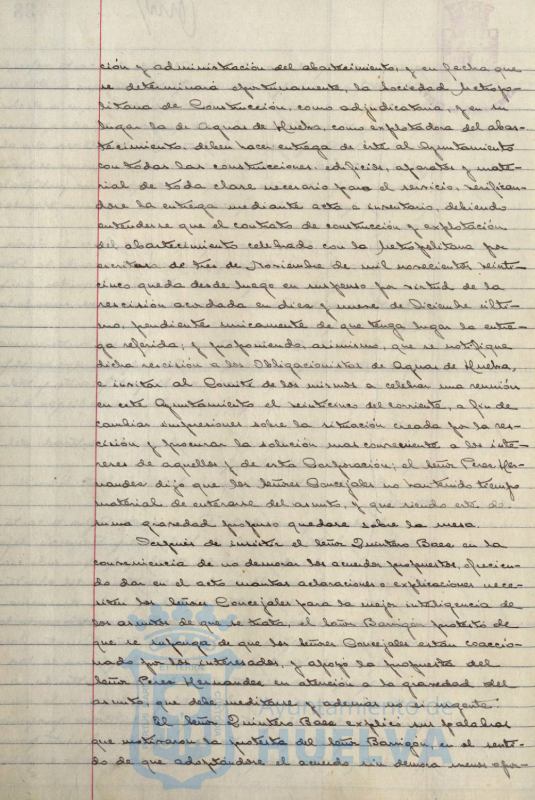 ción y administración del abastecimiento, y en fecha que
se determinará oportunamente, la Sociedad Metropo-
litana de Construcción, como adjudicataria, y en su
lugar la de Aguas de Huelva, como explotadora del abas-
tecimiento, deben hacer entrega de este al Ayuntamiento
con todas las construcciones, edificios, aparatos y mate-
rial de toda clase necesario para el servicio, verifican-
dose la entrega mediante acta e inventario, debiendo
entenderse que el contrato de construcción y explotación
del abastecimiento celebrado con la Metropolitana por
escritura de tres de Noviembre de mil novecientos veinti-
cinco queda desde luego en suspenso por virtud de la
rescisión acordada en diez y nueve de Diciembre últi-
mo, pendiente unicamente de que tenga lugar la entre-
ga referida, y proponiendo, asimismo, que se notifique
dicha rescisión a los Obligacionistas de Aguas de Huelva,
e invitar al Comité de los mismos a celebrar una reunión
en este Ayuntamiento el veinticinco del corriente, a fin de
cambiar impresiones sobre la situación creada por la res-
cisión y procurar la solución mas conveniente a los inte-
reses de aquellos y de esta Corporación; el Señor Perez Her-
nandez dijo que los Señores Concejales no han tenido tiempo
material de enterarse del asunto, y que siendo este de
suma gravedad propuso quedase sobre la mesa.
Después de insistir el Señor Quintero Baez en la
conveniencia de no demorar los acuerdos propuestos, ofrecien-
do dar en el acto cuantas aclaraciones o explicaciones nece-
siten los Señores Concejales para la mejor inteligencia de
los asuntos de que se trata, el Señor Barrigón protestó de
que se suponga de que los Señores Concejales están coaccio-
nado por los interesados, y apoyó la propuesta del
Señor Perez Hernandez en atención a la gravedad del
asunto, que debe meditarse y además no es urgente.
El Señor Quintero Baez explicó sus palabras
que motivaron la protesta del Señor Barrigón, en el senti-
do de que adoptándose el acuerdo sin demora menos
Ayuntamiento de
HUELVA